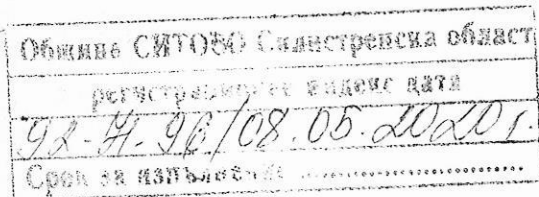 Община СИТОВО Силистренска област
регистрационен индекс дата
92-Н-96/08.05.2020г.
Срок за изпълнение ..............................